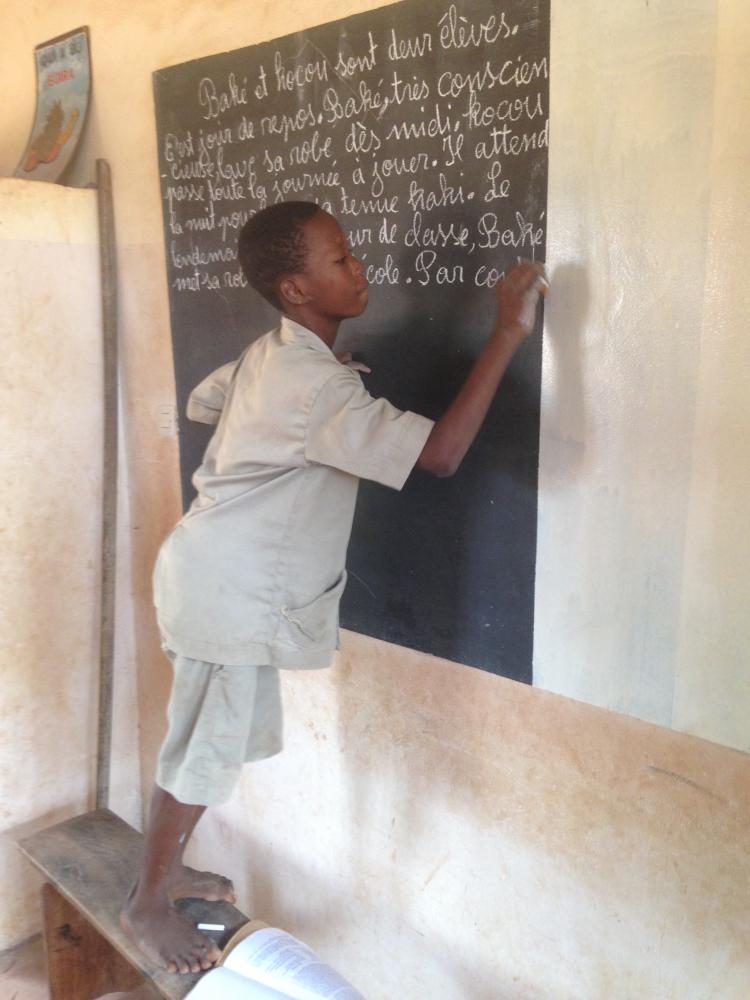 Baké et Kocou sont deux élèves.
C'est jour de repos. Baké, très conscien
-cieuse, lave sa robe, dès midi. Kocou
passe toute la journée à jouer. Il attend
la nuit pour sa tenue kaki. Le
lendemain ur de classe, Baké
met sa rob cole. Par con